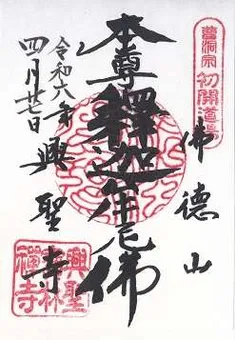 曹洞宗 初開道場
佛德山
本尊釋迦牟尼佛
令和六年
四月廿七日
興聖寺
興聖
寶林
禪寺